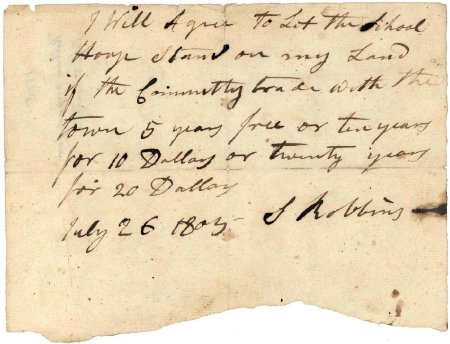 I Will Agree to Let the School
House Stand on my Land
if the Committy trade with the
town 5 years free or ten years
for 10 Dollars or twenty years
for 20 Dollars
July 26 1805 S Robbins